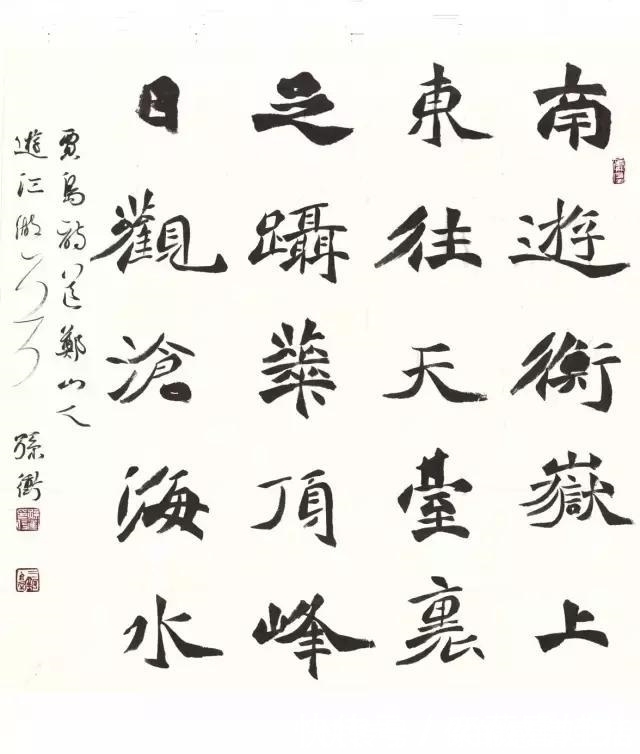 南遊衡嶽上
東往天臺裏
足躡華頂峰
目觀滄海水
賈島詩送鄭山人
遊江湖
孫